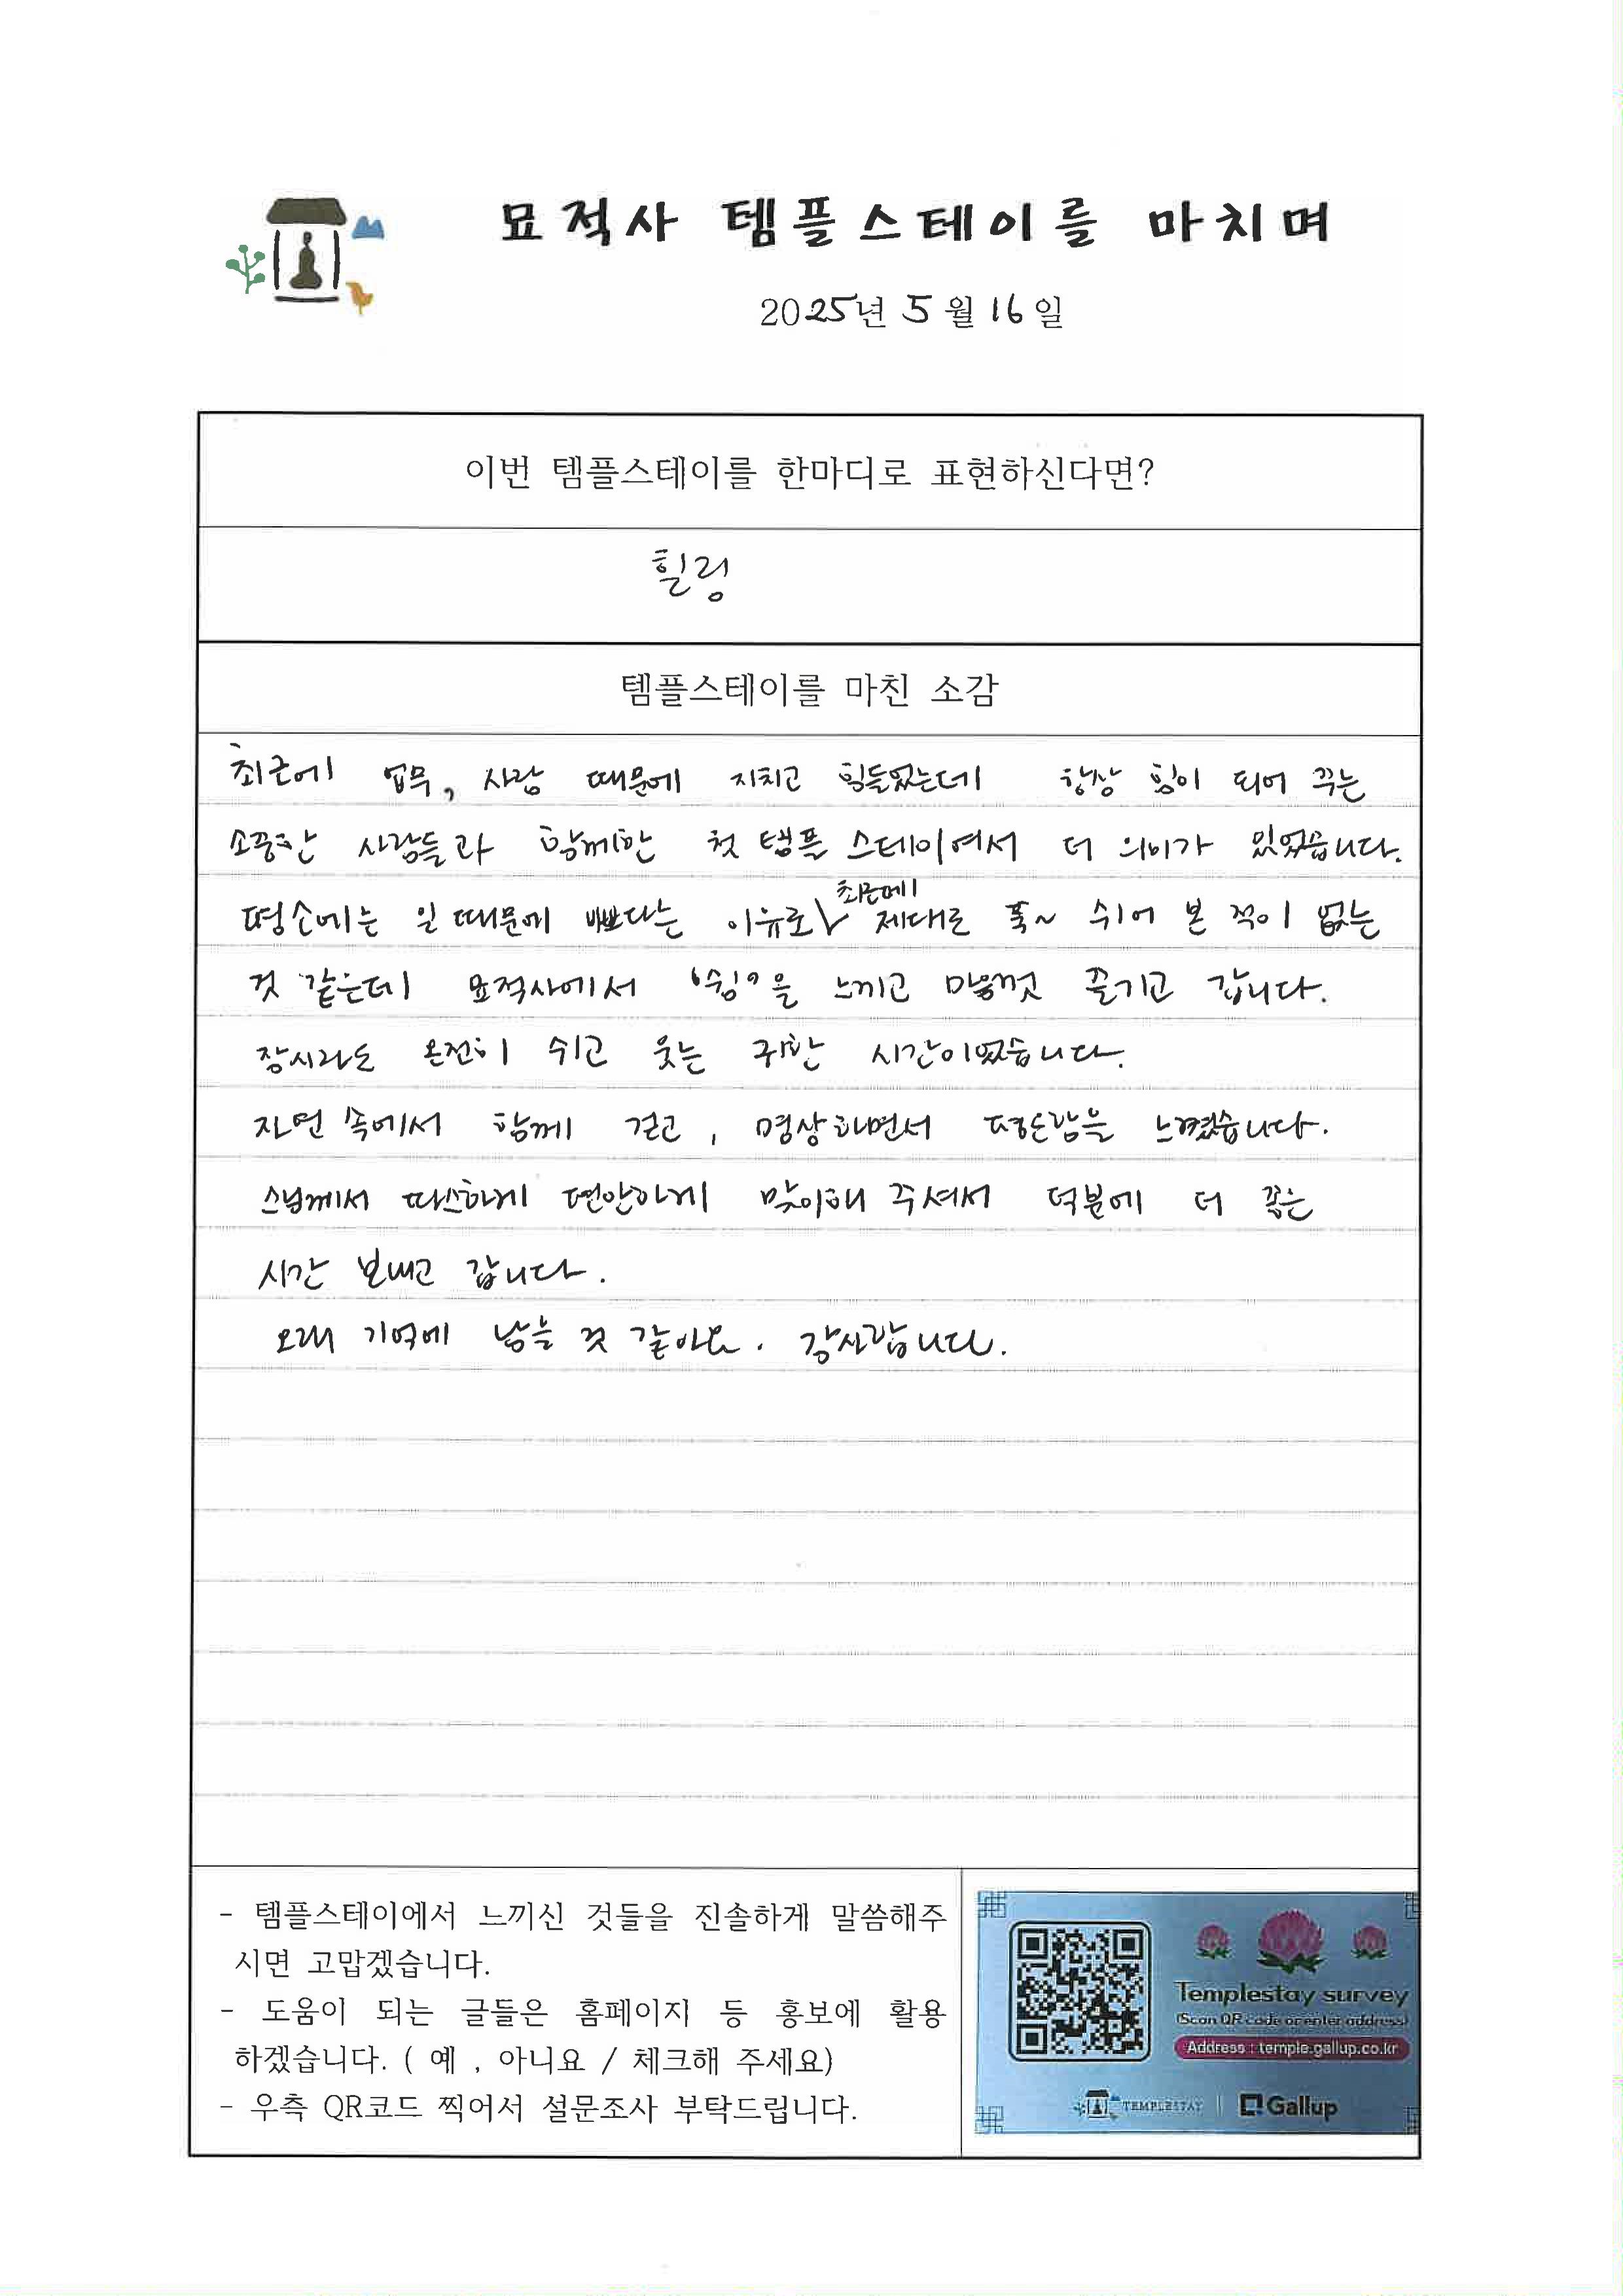 묘적사 템플스테이를 마치며
2025년 5월 16일
이번 템플스테이를 한마디로 표현하신다면?
힐링
템플스테이를 마친 소감
최근에 업무, 사람 때문에 지치고 힘들었는데 항상 힘이 되어 주는
소중한 사람들과 함께한 첫 템플 스테이여서 더 의미가 있었습니다.
최근에
평소에는 일 때문에 바쁘다는 이유로 제대로 푹~ 쉬어 본 적이 없는
것 같은데 묘적사에서 '쉼'을 느끼고 마음껏 즐기고 갑니다.
잠시라도 온전히 쉬고 웃는 귀한 시간이었습니다.
자연 속에서 함께 걷고, 명상하면서 평온함을 느꼈습니다.
스님께서 따스하게 편안하게 맞이해 주셔서 덕분에 더 좋은
시간 보내고 갑니다.
오래 기억에 남을 것 같아요. 감사합니다.
- 템플스테이에서 느끼신 것들을 진솔하게 말씀해주
시면 고맙겠습니다.
- 도움이 되는 글들은 홈페이지 등 홍보에 활용
하겠습니다. ( 예 , 아니요 / 체크해 주세요)
- 우측 QR코드 찍어서 설문조사 부탁드립니다.
Templestay survey
(Scan QR code or enter address)
Address : temple.gallup.co.kr
TEMPLESTAY
Gallup